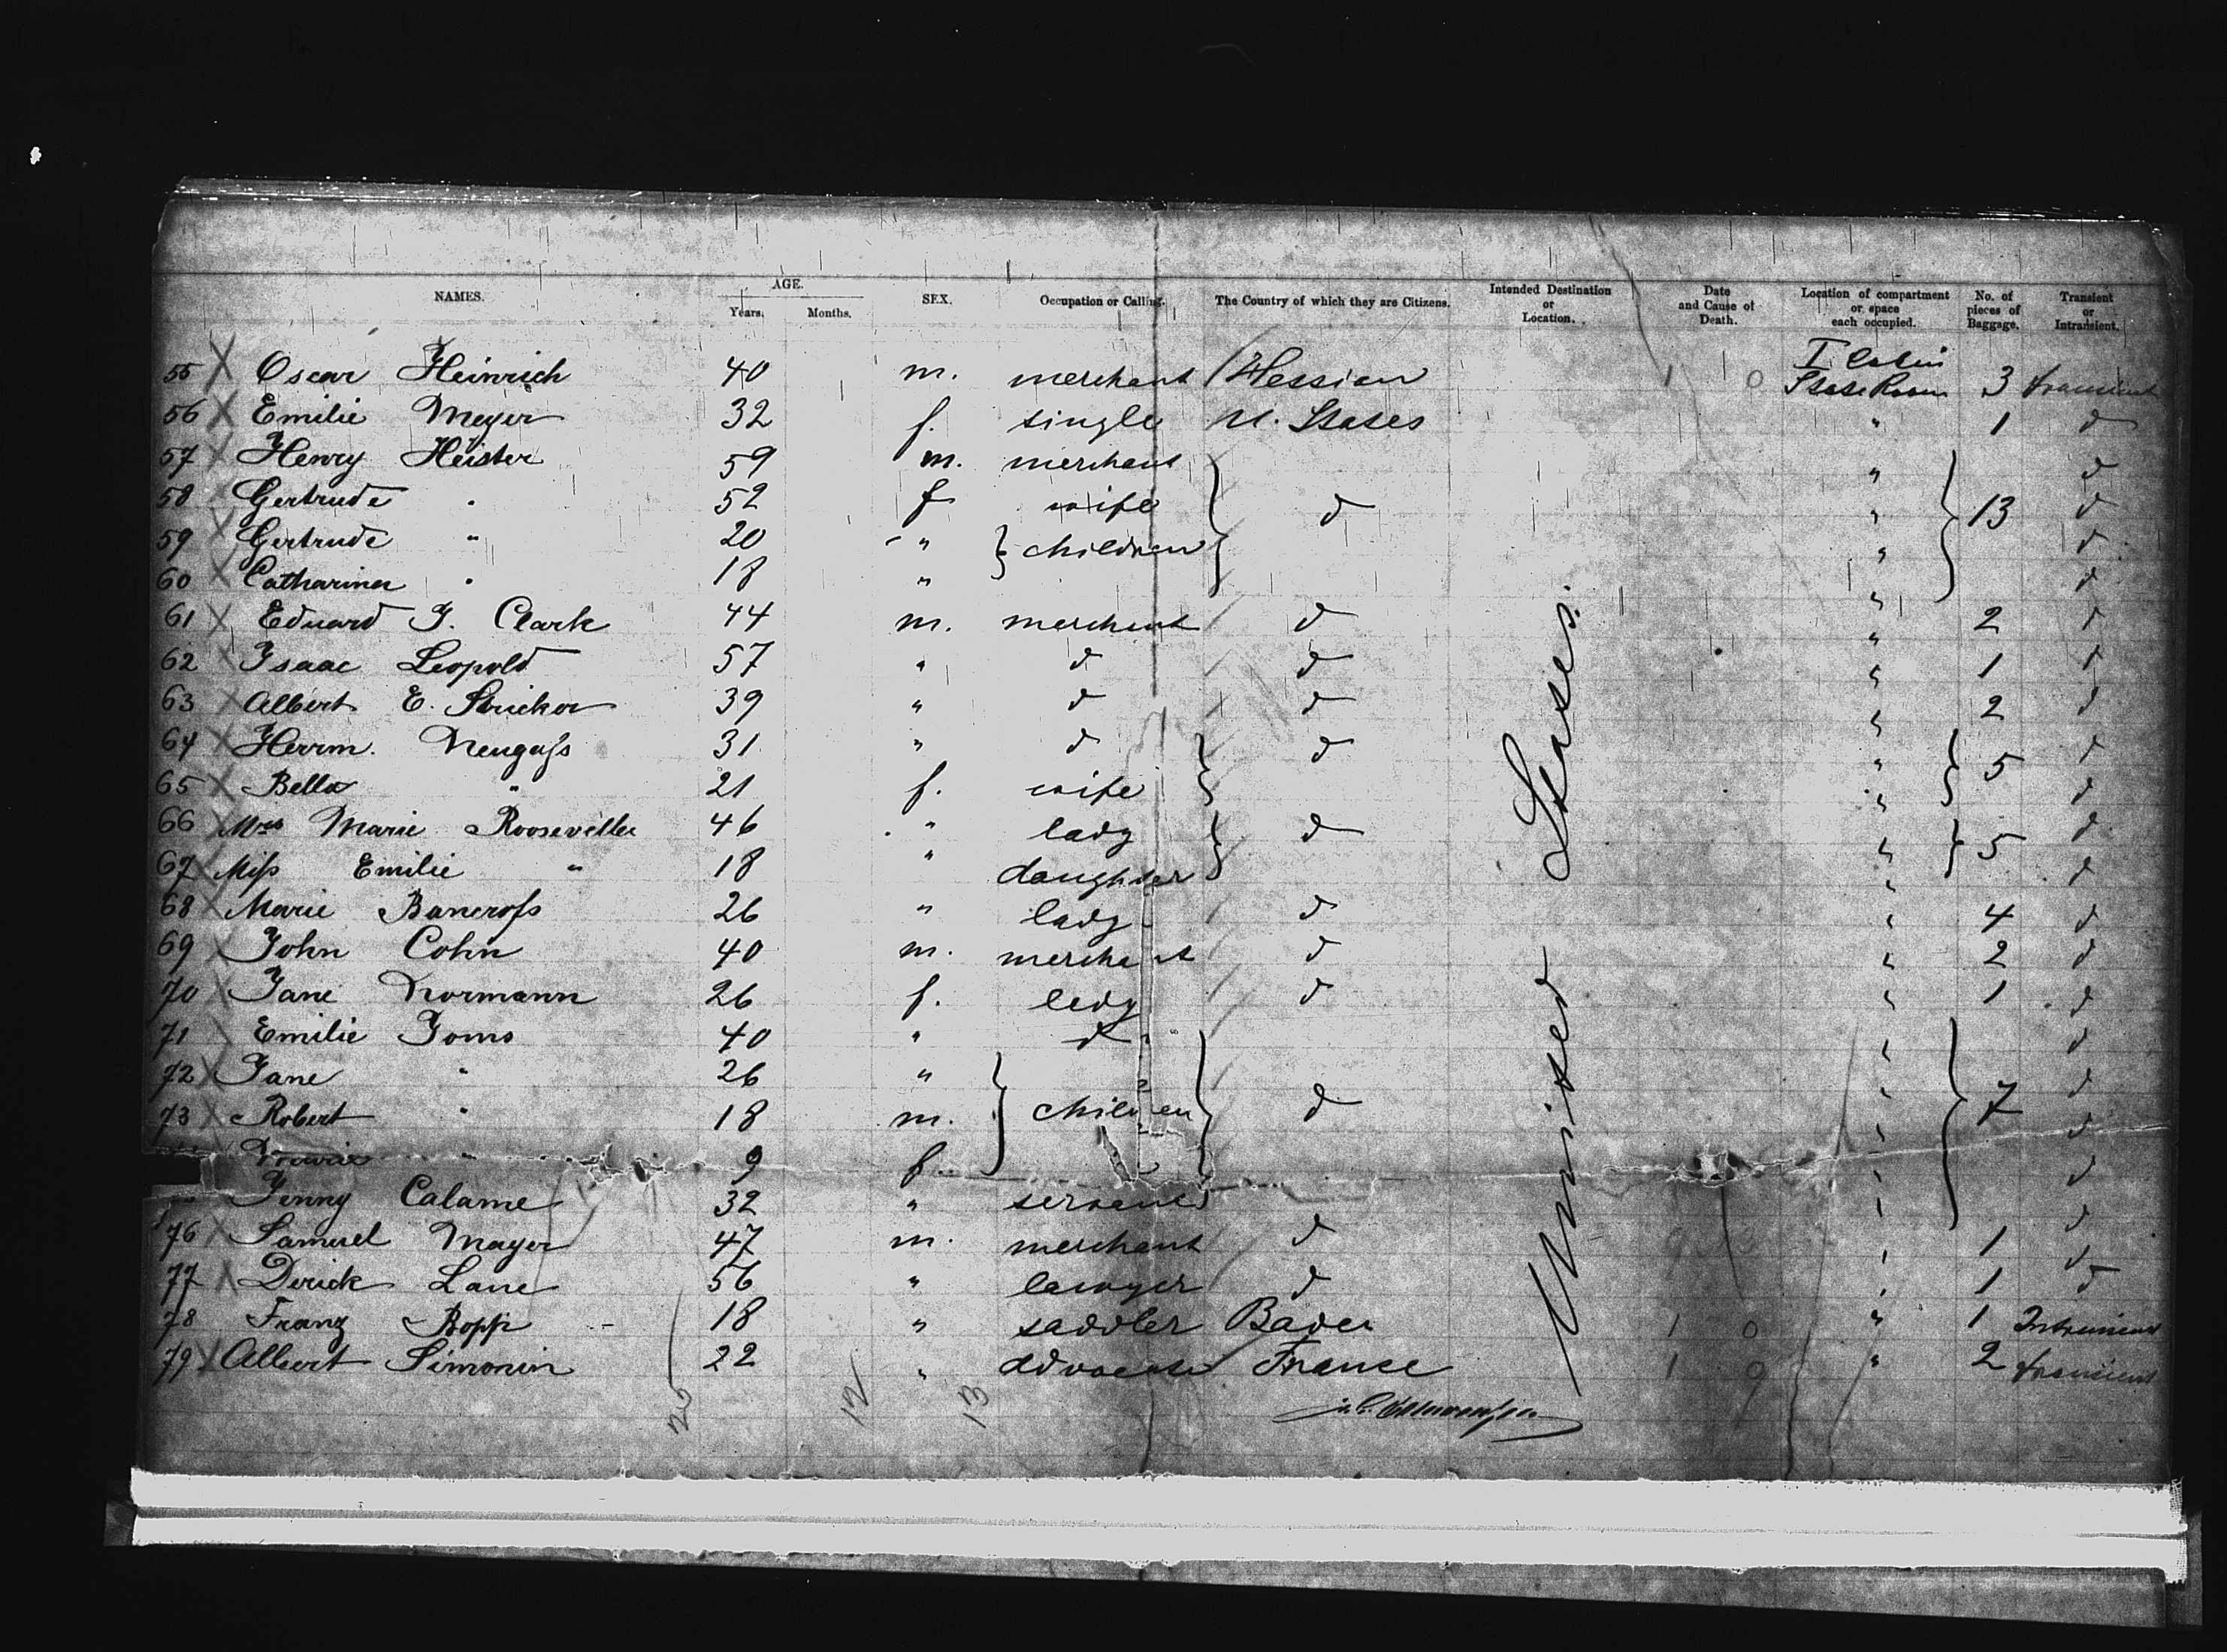 NAMES. AGE. Years. Months. SEX. Occupation or Calling. The Country of which they are Citizens. Intended Destination or Location. Date and Cause of Death. Location of compartment or space each occupied. No. of pieces of Baggage. Transient or Intransient.
55 X Oscar Heinrich 40 m. merchant Hessian 1 0 I Cabin State Room 3 transient
56 X Emilie Meyer 32 f. single U. States " 1 d
57 X Henry Heister 59 m. merchant " d
58 Gertrude " 52 f wife d " 13 d
59 X Gertrude " 20 " children " d
60 X Catharina " 18 " " d
61 X Eduard J. Clark 44 m. merchant d " 2 d
62 X Isaac Leopold 57 " d d " 1 d
63 X Albert E. Stricker 39 " d d " 2 d
64 X Herrm. Neugass 31 " d d " 5 d
65 X Bella " 21 f. wife " d
66 X Mrs Marie Roosevelle 46 " lady d " 5 d
67 X Miss Emilie " 18 " daughter " d
68 X Marie Bancross 26 " lady d " 4 d
69 X John Cohn 40 m. merchant d " 2 d
70 X Jane Normann 26 f. lady d " 1 d
71 X Emilie Joms 40 " d " d
72 X Jane " 26 " children d " 7 d
73 X Robert " 18 m. " d
" 9 f. " d
Jenny Calame 32 " servant " d
76 X Samuel Mayer 47 m. merchant d " 1 d
77 X Derick Lane 56 " lawyer d " 1 d
78 Franz Bopp 18 " saddler Baden 1 0 " 1 Intransient
79 X Albert Simonin 22 " advocate France 1 9 " 2 transient
United States.
20 12 13